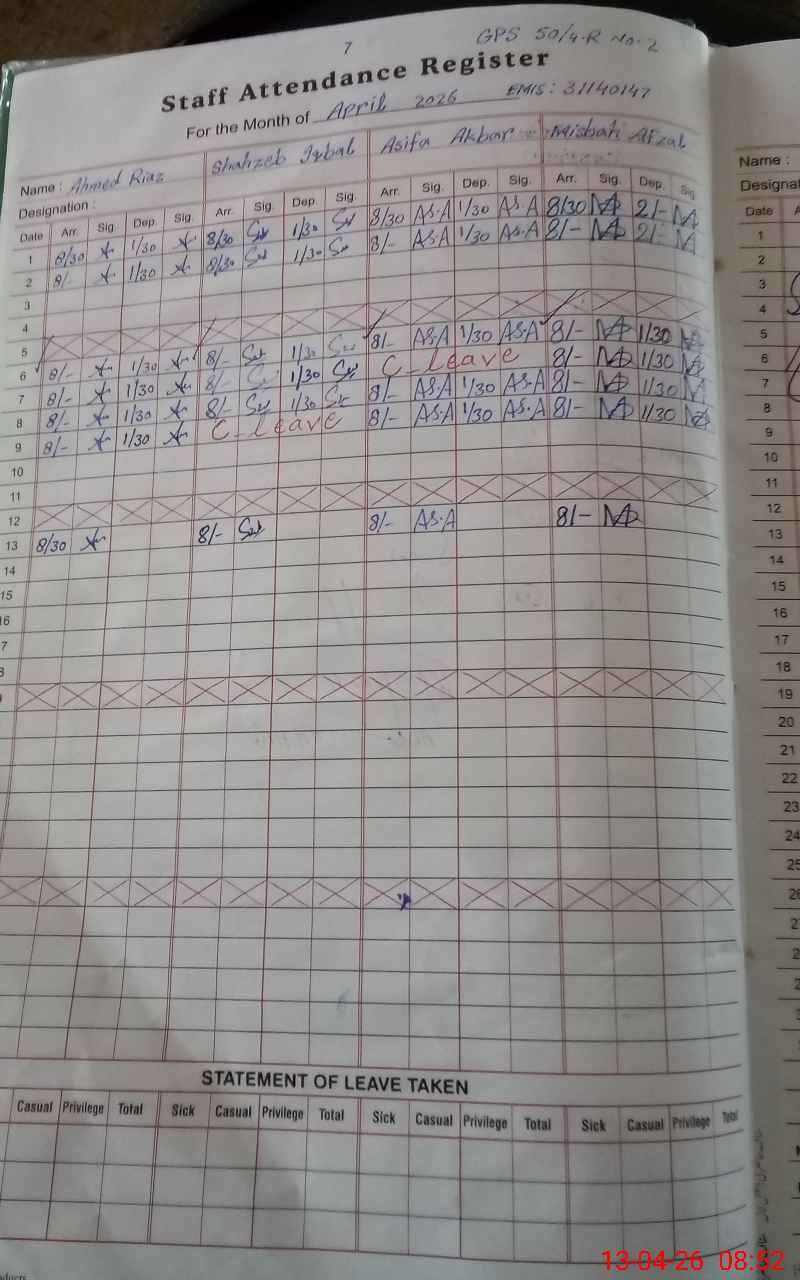 7
GPS 50/4-R No.2
Staff Attendance Register
For the Month of April 2026 EMIS: 31140147
Name : Ahmed Riaz Shahzeb Iqbal Asifa Akbar Misbah Afzal
Designation :
Date Arr. Sig. Dep. Sig. Arr. Sig. Dep. Sig. Arr. Sig. Dep. Sig. Arr. Sig. Dep. Sig
1 8/30 1/30 8/30 1/30 8/30 AS.A 1/30 AS.A 8/30 2/-
2 8/- 1/30 8/30 1/30 8/- AS.A 1/30 AS.A 8/- 2/-
3
4
5
6 8/- 1/30 8/- 1/30 8/- AS.A 1/30 AS.A 8/- 1/30
7 8/- 1/30 8/- 1/30 C-leave 8/- 1/30
8 8/- 1/30 8/- 1/30 8/- AS.A 1/30 AS.A 8/- 1/30
9 8/- 1/30 C-leave 8/- AS.A 1/30 AS.A 8/- 1/30
10
11
12
13 8/30 8/- 8/- AS.A 8/-
14
15
6
7
STATEMENT OF LEAVE TAKEN
Casual Privilege Total Sick Casual Privilege Total Sick Casual Privilege Total Sick Casual Privilege Total
Name :
Designat
Date A
1
2
3
4
5
6
7
8
9
10
11
12
13
14
15
16
17
18
19
20
21
22
23
24
25
26
2
2
2
13-04-26 08:52